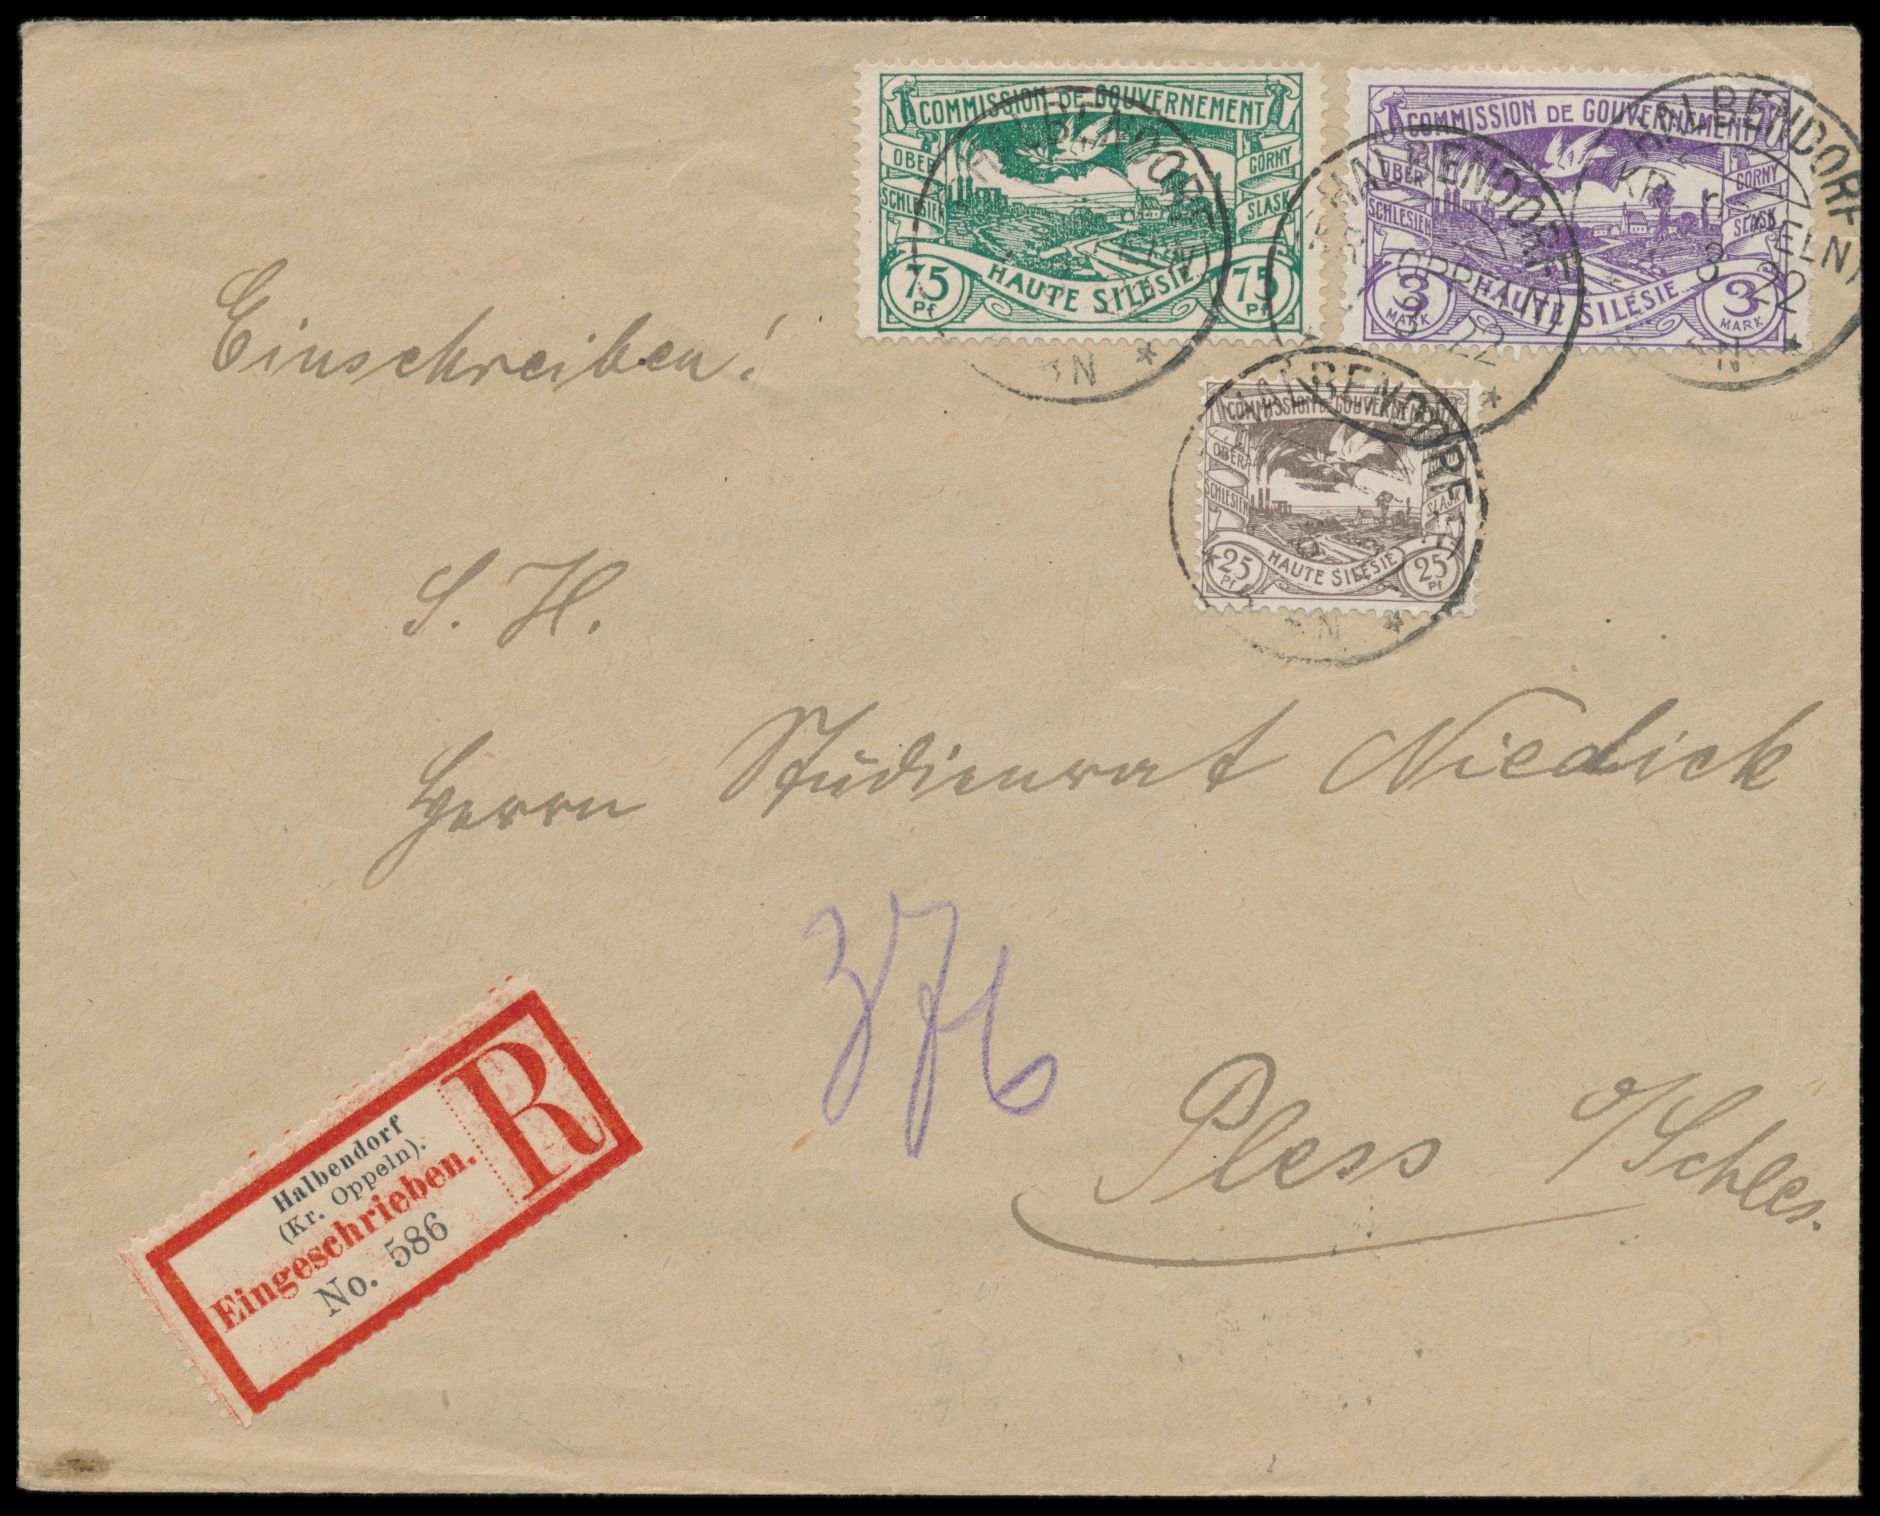 COMMISSION DE GOUVERNEMENT
OBER SCHLESIEN
GORNY SLASK
HAUTE SILESIE
75 Pf
75 Pf
COMMISSION DE GOUVERNEMENT
OBER SCHLESIEN
GORNY SLASK
HAUTE SILESIE
3 MARK
3 MARK
HALBENDORF
HALBENDORF
(KR. OPPELN)
22
HALBENDORF
22
Einschreiben!
COMMISSION DE GOUVERNEMENT
OBER SCHLESIEN
SLASK
HAUTE SILESIE
25 Pf
25 Pf
HALBENDORF
S. H.
Herrn Studienrat Niedick
376
Pless o/Schles.
Halbendorf
(Kr. Oppeln).
Eingeschrieben.
No. 586
R